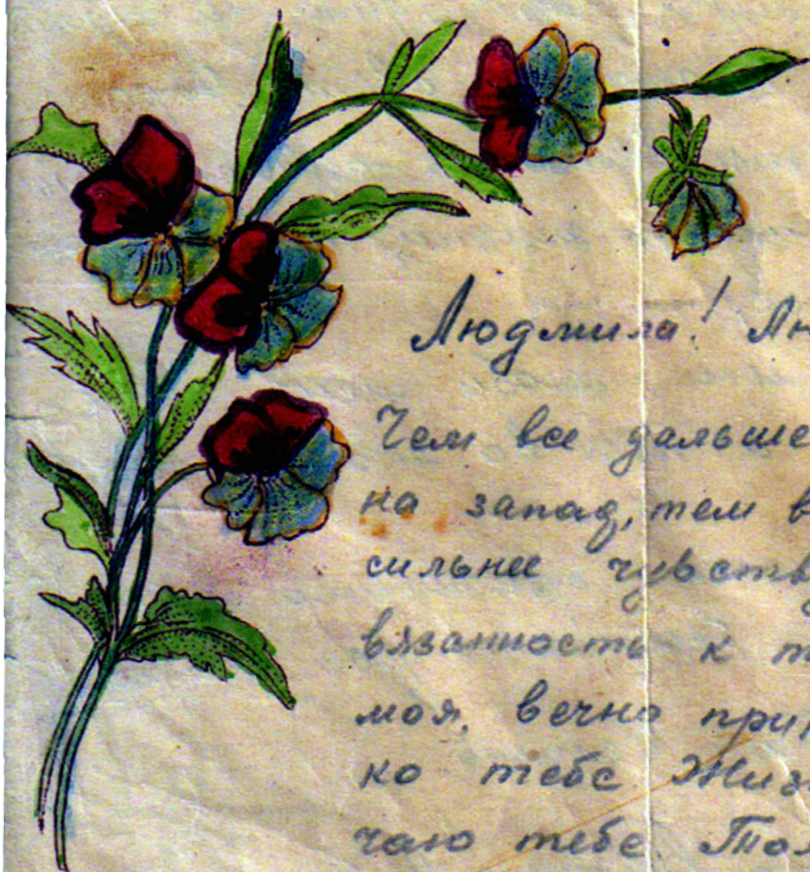 Людмила! Лю
Чем все дальше
на запад, тем в
сильнее чувств
вязанность к т
моя, вечно прин
ко тебе Жиз
чаю тебе. Тол